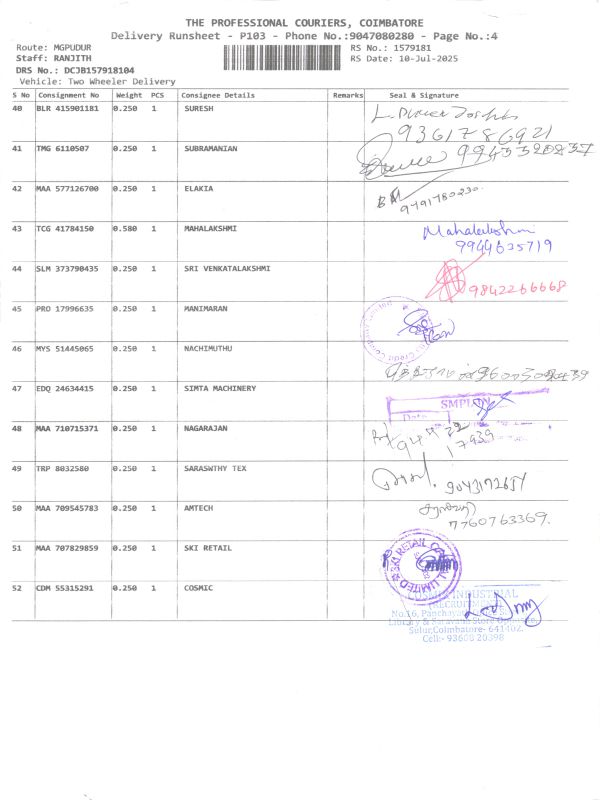 THE PROFESSIONAL COURIERS, COIMBATORE
Delivery Runsheet - P103 - Phone No.:9047080280 - Page No.:4
Route: MGPUDUR RS No.: 1579181
Staff: RANJITH RS Date: 10-Jul-2025
DRS No.: DCJB157918104
Vehicle: Two Wheeler Delivery
S No Consignment No Weight PCS Consignee Details Remarks Seal & Signature
40 BLR 415901181 0.250 1 SURESH
9361786921
41 TMG 6110507 0.250 1 SUBRAMANIAN
42 MAA 577126700 0.250 1 ELAKIA 9791780230.
43 TCG 41784150 0.580 1 MAHALAKSHMI Mahalakshmi
9944635719
44 SLM 373790435 0.250 1 SRI VENKATALAKSHMI 9842266668
45 PRO 17996635 0.250 1 MANIMARAN
46 MYS 51445065 0.250 1 NACHIMUTHU
47 EDQ 24634415 0.250 1 SIMTA MACHINERY
48 MAA 710715371 0.250 1 NAGARAJAN
49 TRP 8032580 0.250 1 SARASWTHY TEX 9043172654
50 MAA 709545783 0.250 1 AMTECH
7760763369.
51 MAA 707829859 0.250 1 SKI RETAIL SKI RETAIL
52 CDM 55315291 0.250 1 COSMIC INDUSTRIAL
No.16, Panchayat
Sulur, Coimbatore- 641402.
Cell:- 93608 20398